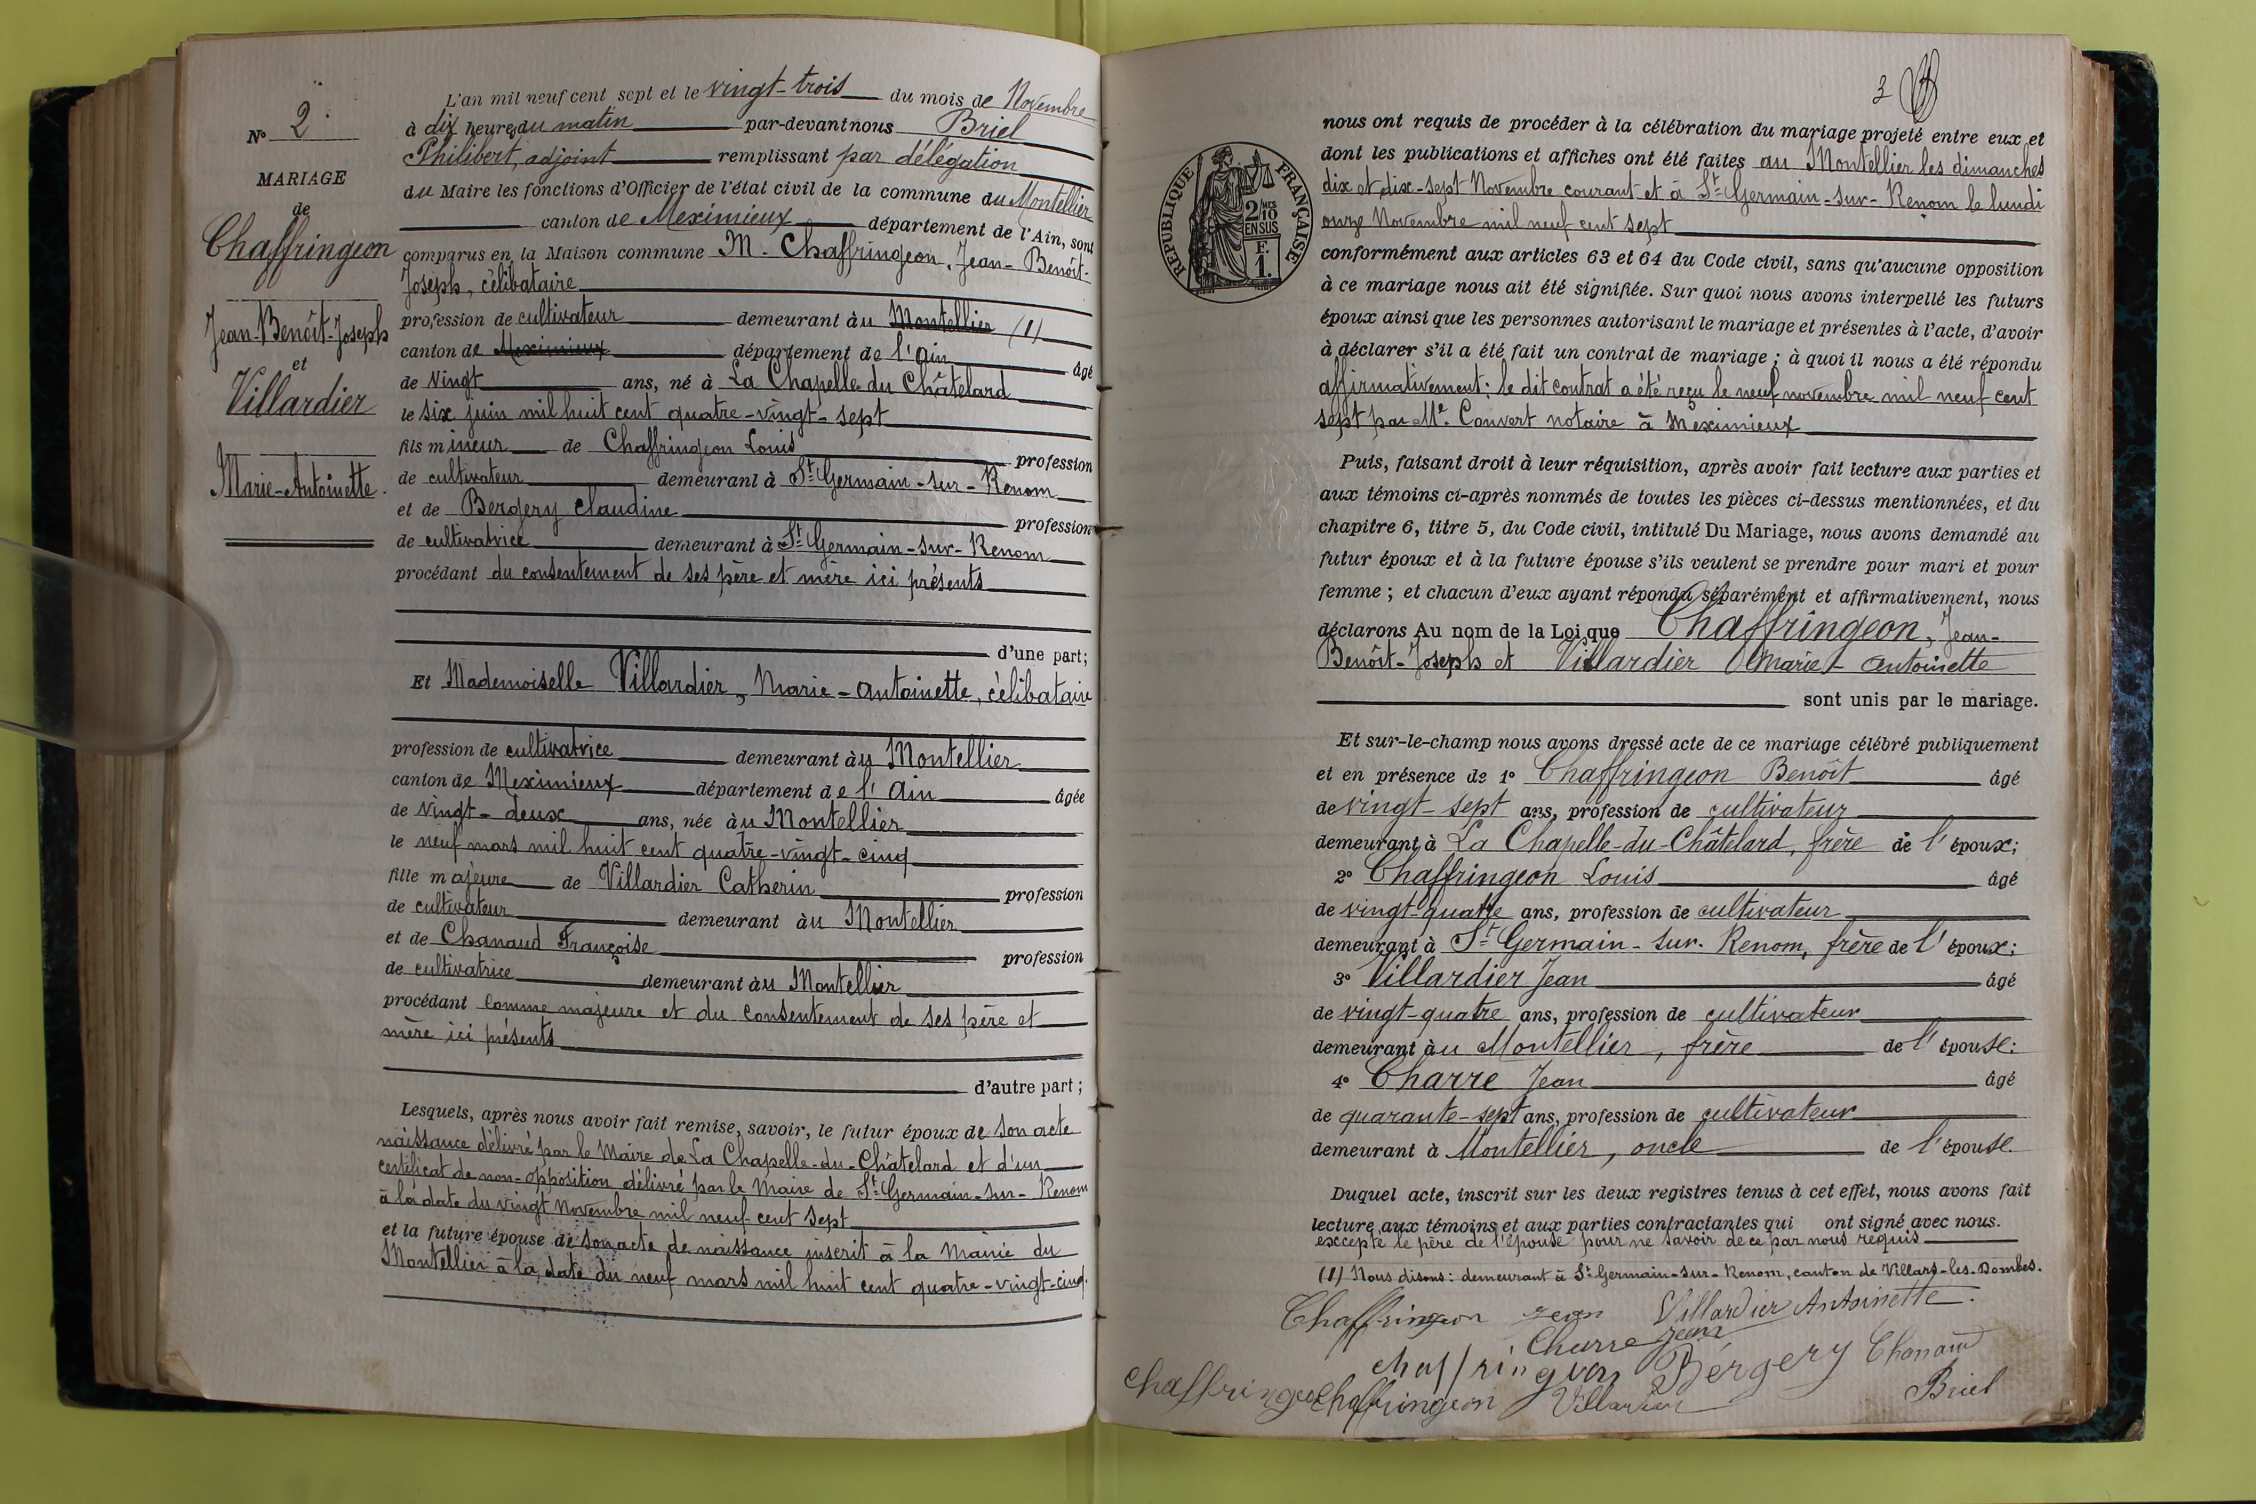 N° 2
MARIAGE
de
Chaffringeon
Jean-Benôit-Joseph
et
Villardier
Marie-Antoinette.
L'an mil neuf cent sept et le vingt-trois du mois de Novembre
à dix heures du matin par-devant nous Briel
Philibert, adjoint remplissant par délégation
du Maire les fonctions d'Officier de l'état civil de la commune du Montellier
canton de Meximieux département de l'Ain, sont
comparus en la Maison commune M. Chaffringeon, Jean-Benôit-
Joseph, célibataire
profession de cultivateur demeurant au Montellier (1)
canton de Meximieux département de l'Ain âgé
de vingt ans, né à La Chapelle du Châtelard
le six juin mil huit cent quatre-vingt-sept
fils mineur de Chaffringeon Louis profession
de cultivateur demeurant à St Germain-sur-Renom
et de Bergery Claudine profession
de cultivatrice demeurant à St Germain-sur-Renom
procédant du consentement de ses père et mère ici présents
d'une part;
Et Mademoiselle Villardier, Marie-Antoinette, célibataire
profession de cultivatrice demeurant au Montellier
canton de Meximieux département de l'Ain âgée
de vingt-deux ans, née au Montellier
le neuf mars mil huit cent quatre-vingt-cinq
fille majeure de Villardier Catherin profession
de cultivateur demeurant au Montellier
et de Chanaud Françoise profession
de cultivatrice demeurant au Montellier
procédant comme majeure et du consentement de ses père et
mère ici présents
d'autre part;
Lesquels, après nous avoir fait remise, savoir, le futur époux de son acte
naissance délivré par le Maire de La Chapelle-du-Châtelard et d'un
certificat de non-opposition délivré par le Maire de St Germain-sur-Renom
à la date du vingt Novembre mil neuf cent sept
et la future épouse de son acte de naissance inscrit à la Mairie du
Montellier à la date du neuf mars mil huit cent quatre-vingt-cinq.
3
RÉPUBLIQUE FRANÇAISE
2/10 MES
EN SUS
F.
1.
nous ont requis de procéder à la célébration du mariage projeté entre eux et
dont les publications et affiches ont été faites au Montellier les dimanches
dix et dix-sept Novembre courant et à St Germain-sur-Renom le lundi
onze Novembre mil neuf cent sept
conformément aux articles 63 et 64 du Code civil, sans qu'aucune opposition
à ce mariage nous ait été signifiée. Sur quoi nous avons interpellé les futurs
époux ainsi que les personnes autorisant le mariage et présentes à l'acte, d'avoir
à déclarer s'il a été fait un contrat de mariage; à quoi il nous a été répondu
affirmativement: le dit contrat a été reçu le neuf novembre mil neuf cent
sept par Me. Convert notaire à Meximieux
Puis, faisant droit à leur réquisition, après avoir fait lecture aux parties et
aux témoins ci-après nommés de toutes les pièces ci-dessus mentionnées, et du
chapitre 6, titre 5, du Code civil, intitulé Du Mariage, nous avons demandé au
futur époux et à la future épouse s'ils veulent se prendre pour mari et pour
femme; et chacun d'eux ayant répondu séparément et affirmativement, nous
déclarons Au nom de la Loi que Chaffringeon, Jean-
Benôit-Joseph et Villardier Marie-Antoinette
sont unis par le mariage.
Et sur-le-champ nous avons dressé acte de ce mariage célébré publiquement
et en présence de 1° Chaffringeon Benôit âgé
de vingt-sept ans, profession de cultivateur
demeurant à La Chapelle-du-Châtelard, frère de l'époux;
2° Chaffringeon Louis âgé
de vingt-quatre ans, profession de cultivateur
demeurant à St Germain-sur-Renom, frère de l'époux;
3° Villardier Jean âgé
de vingt-quatre ans, profession de cultivateur
demeurant au Montellier, frère de l'épouse;
4° Charre Jean âgé
de quarante-sept ans, profession de cultivateur
demeurant à Montellier, oncle de l'épouse.
Duquel acte, inscrit sur les deux registres tenus à cet effet, nous avons fait
lecture aux témoins et aux parties contractantes qui ont signé avec nous.
excepté le père de l'épouse pour ne savoir de ce par nous requis
(1) Nous disons: demeurant à St Germain-sur-Renom, canton de Villars-les-Dombes.
Chaffringeon Jean Villardier Antoinette.
Charre Jean
chaffringeon Bergery Chanaud
chaffringeon Chaffringeon Villardier Briel